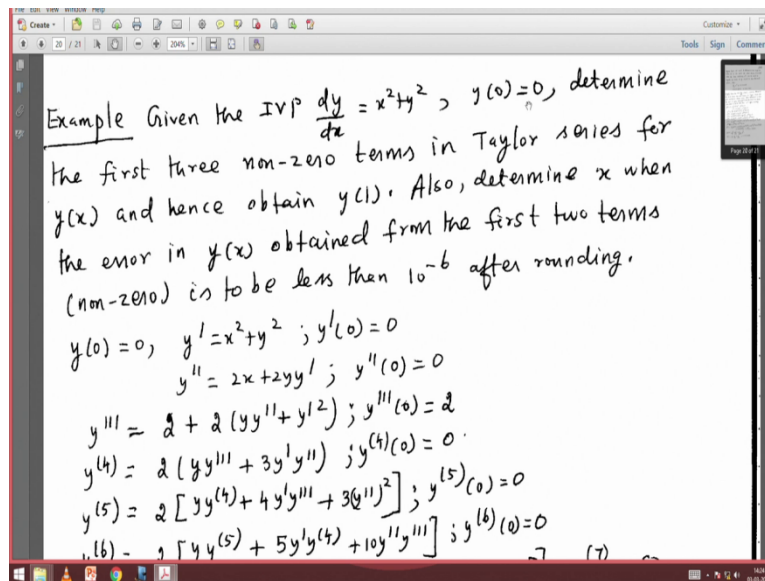 File Edit View Window Help
Create
Customize
20 / 21
204%
Tools Sign Comment
Example Given the IVP dy/dx = x²+y², y(0)=0, determine
the first three non-zero terms in Taylor series for
y(x) and hence obtain y(1). Also, determine x when
the error in y(x) obtained from the first two terms
(non-zero) is to be less than 10⁻⁶ after rounding.
y(0) = 0, y' = x²+y² ; y'(0) = 0
y'' = 2x+2yy' ; y''(0) = 0
y''' = 2 + 2(yy''+y'²) ; y'''(0) = 2
y⁽⁴⁾ = 2(yy''' + 3y'y'') ; y⁽⁴⁾(0) = 0.
y⁽⁵⁾ = 2[yy⁽⁴⁾ + 4y'y''' + 3(y'')²] ; y⁽⁵⁾(0) = 0
y⁽⁶⁾ = 2[yy⁽⁵⁾ + 5y'y⁽⁴⁾ + 10y''y'''] ; y⁽⁶⁾(0) = 0
Page 20 of 21
14:24